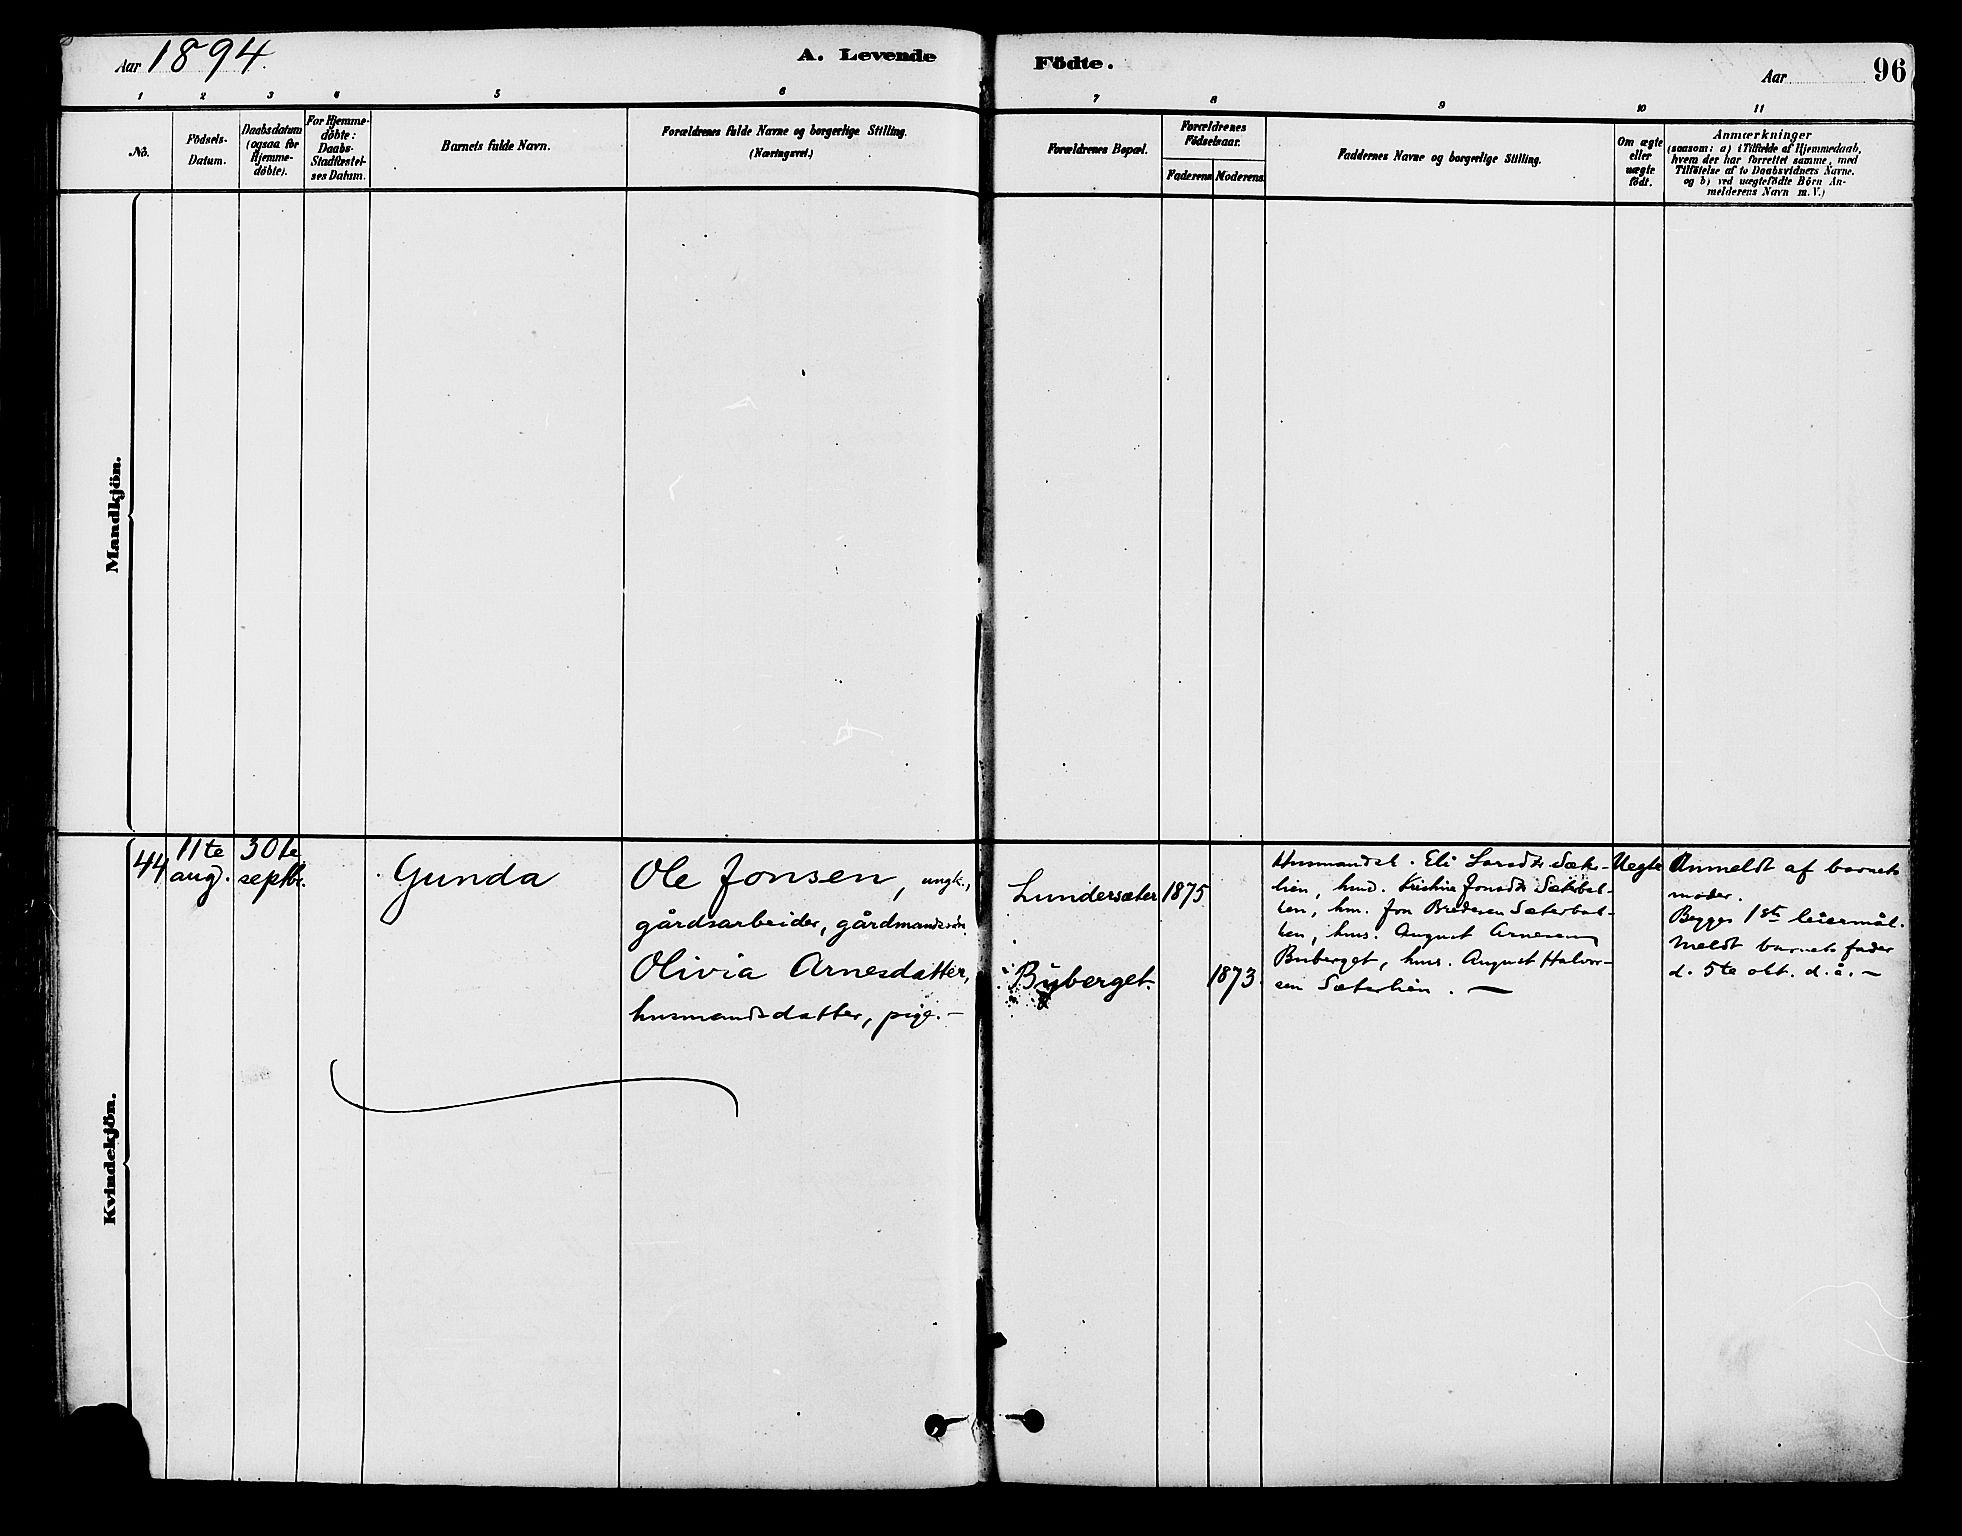 Aar 1894.
A. Levende Födte.
Aar 96
1 2 3 4 5 6 7 8 9 10 11
No.
Födsels-
Datum.
Daabsdatum
(ogsaa for
Hjemme-
döbte).
For Hjemme-
döbte:
Daabs-
Stadfæstel-
ses Datum.
Barnets fulde Navn.
Forældrenes fulde Navne og borgerlige Stilling.
(Næringsvei.)
Forældrenes Bopæl.
Forældrenes
Födselsaar.
Faderens Moderens
Faddernes Navne og borgerlige Stilling.
Om ægte
eller
uægte
födt.
Anmærkninger
(saasom: a) i Tilfælde af Hjemmedaab,
hvem der har forrettet samme, med
Tilföielse af to Daabsvidners Navne.
og b) ved uægtefödte Börn An-
melderens Navn m. V.)
Mandkjön.
Kvindekjön.
44
11te
aug.
30te
septbr.
Gunda
Ole Jonsen, ungk.,
gårdsarbeider, gårdmandssön.
Olivia Arnesdatter,
husmandsdatter, pige.—
Lundersæter
Byberget.
1875
1873.
Eli Larsdtr Sæter-
lien, Kristine Jonsdtr Sæterbak-
ken, hm. Jon Bredesen Sæterbak-
ken, hus. August Arnesen
Buberget, hus. August Halvor-
sen Sæterlien. —
Uegte
Anmeldt af barnets
moder.
Begges 1ste leiermål.
Meldt barnets fader
d. 5te okt. d. å. —